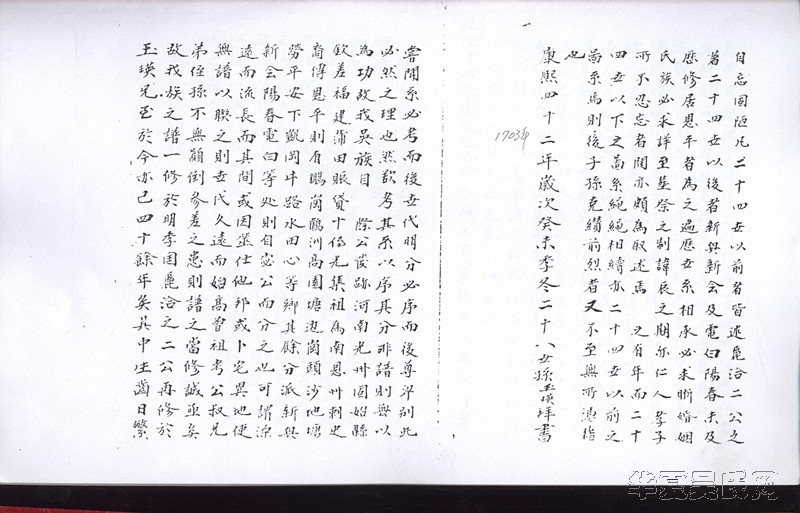 自忘固陋凡二十四世以前者皆述麂洽二公之
舊二十四世以後者新興新会及電白陽春未及
歴修居恩平者為之遍歴世系相承必求晰婚姻
民族必求詳至墓祭之制諱辰之期亦仁人孝子
所不忍忘者間亦頗為叙述焉 之有年而二十
四世以下之啚系絕絕相續亦二十四世以前之
啚系焉則後子孫克纘前烈者又不至無所憑楷
也
康熙四十二年歲次癸未季冬二十八世孫玉瑛拜書
1703年
嘗聞系必考而後世代明分必序而後尊卑別此
必然之理也然欲考其系以序其分非譜則無以
為功故我吳族目 際公俊跡河南光州固始縣
欽差福建莆田賑貸十傳光集祖為南恩州刺史
裔傳恩平則有鵰崗鵰洲高園塘边崗頭沙地塘
勞平安下凱岡牛路水田心等鄉其餘分派新興
新会陽春電白等处則自宓公而分之也可謂源
遠而流長而其間或因筮仕他邦或卜宅異地使
無譜以聯之則世代久遠而始高曾祖考公叔兄
弟侄孫不無顛倒參差之患則譜之當修誠亟矣
故我族之譜一修於明季因麂洽之二公再修於
玉瑛兄至於今亦已四十餘年矣其中生齒日繁
华夏吴氏网